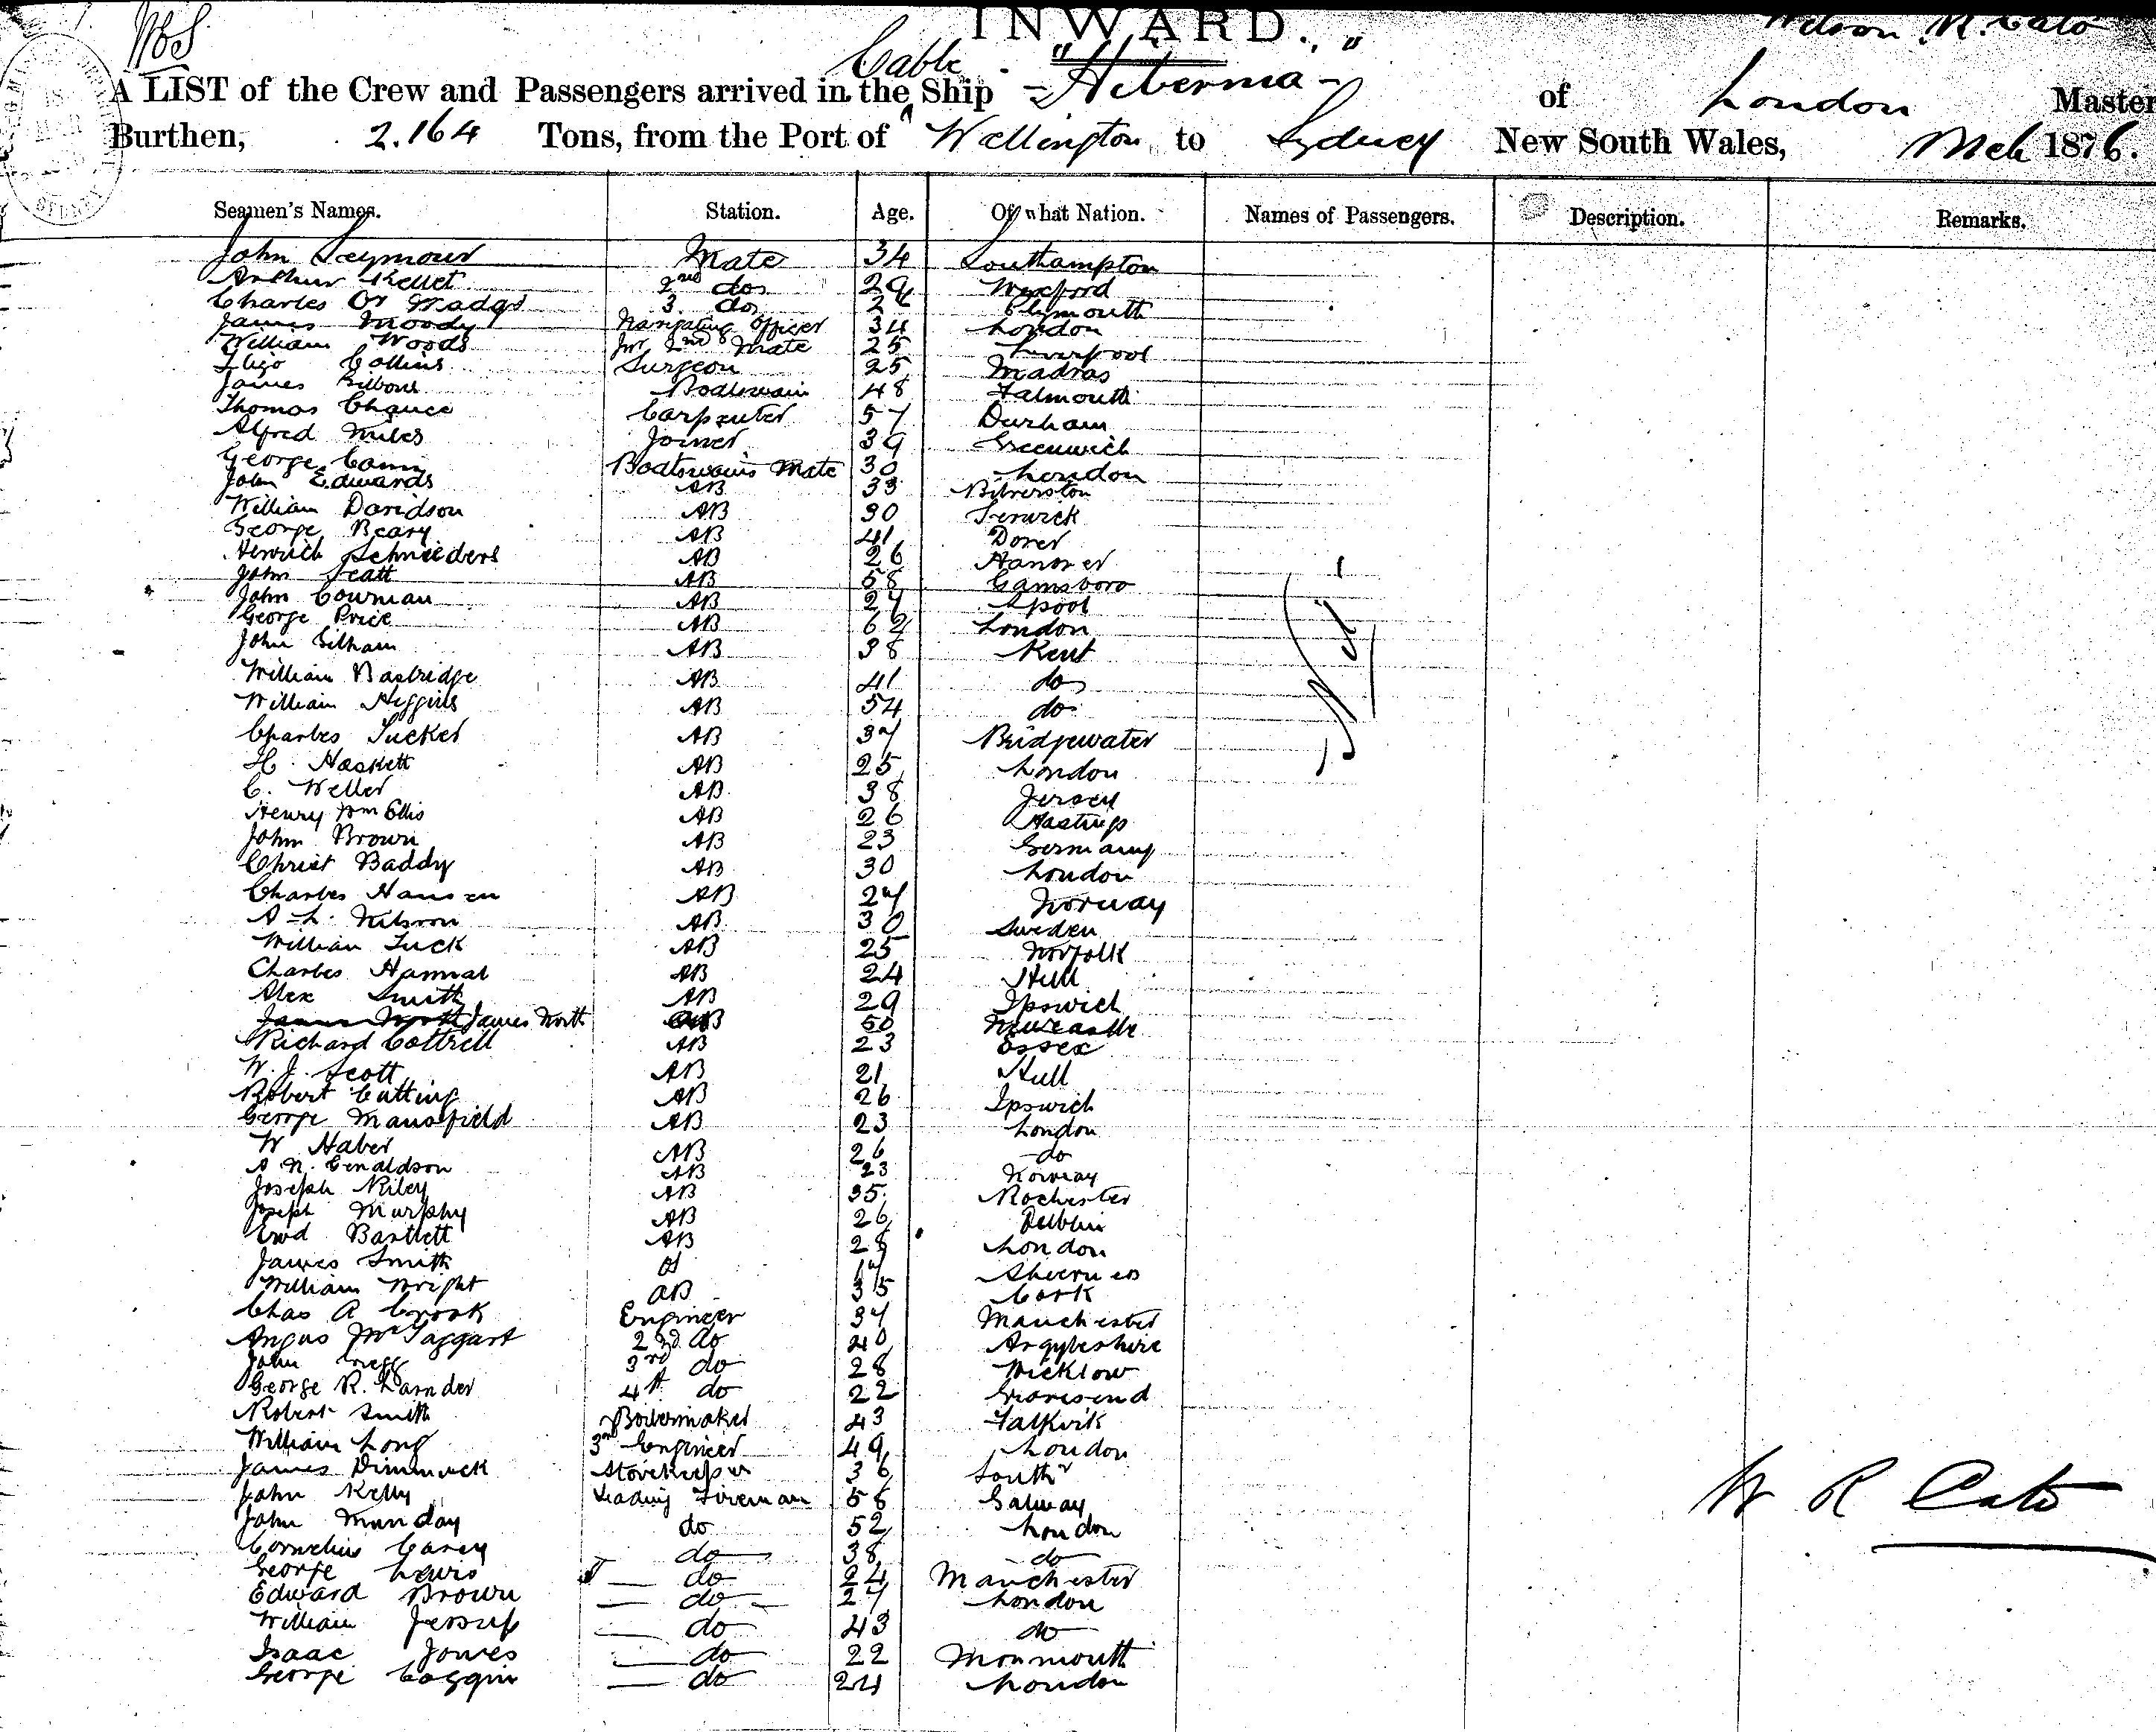 INWARD.
Wilson R. Cato
A LIST of the Crew and Passengers arrived in the Cable Ship "Hibernia" of London Master
Burthen, 2.164 Tons, from the Port of Wellington to Sydney New South Wales, Mch 1876.
Seamen's Names. Station. Age. Of what Nation. Names of Passengers. Description. Remarks.
John Seymour Mate 34 Southampton
Arthur Kellet 2nd do 29 Wexford
Charles 3. do Plymouth
James Moody Navigating Officer 34 London
William Woods Jnr 2nd Mate 25 Liverpool
Collins Surgeon 25 Madras
James Boatswain 48 Falmouth
Thomas Chance Carpenter 57 Durham
Alfred Miles Joiner 39 Greenwich
George Boatswains Mate 30 London
John Edwards AB 33
William Davidson AB 30
George Beary AB 41 Dover
Henrich Schnieders AB 26 Hanover
John AB 58 Gainsboro
John Cowman AB 27 Lpool
George Price AB 62 London
John Gilham AB 38 Kent
William Bastridge AB 41 do
William Higgins AB 54 do
Charles Tucker AB 37 Bridgewater
H. Haskett AB 25 London
C. Weller AB 38 Jersey
Henry Wm Ellis AB 26 Hastings
John Brown AB 23 Germany
Christ Baddy AB 30 London
Charles Hansen AB 27 Norway
A L. Nilsson AB 30 Sweden
William Tuck AB 25 Norfolk
Charles AB 24 Hull
Alex Smith AB 29 Ipswich
James North James North AB 50 Newcastle
Richard Cottrell AB 23 Essex
W. J. Scott AB 21 Hull
Robert Cutting AB 26 Ipswich
George Mansfield AB 23 London
W Haber AB 26 do
A N. AB 23 Norway
Joseph Riley AB 35 Rochester
Joseph Murphy AB 26 Dublin
Ewd Bartlett AB 28 London
James Smith OS 17 Sheerness
William Wright AB 35 Cork
Chas A Crook Engineer 37 Manchester
Angus McTaggart 2nd do 40 Argyleshire
John Gregg 3rd do 28 Wicklow
George R. Larnder 4th do 22 Gravesend
Robert Smith Boilermaker 43 Falkirk
William Long 3rd Engineer 49 London
James Dimmock Storekeeper 36 Southn
John Kelly Leading Fireman 58 Galway
John Munday do 52 London
Cornelius Carey do 38 do
George Lewis do 24 Manchester
Edward Brown do 27 London
William Jessup do 43 do
Isaac Jones do 22 Monmouth
George Coggin do 24 London
Nil
W R Cato